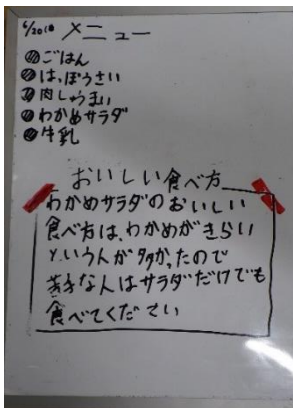 6/20(水) メニュー
ごはん
はっぽうさい
肉しゅうまい
わかめサラダ
牛乳
おいしい食べ方
わかめサラダのおいしい
食べ方は、わかめがきらい
という人が多かったので
苦手な人はサラダだけでも
食べてください